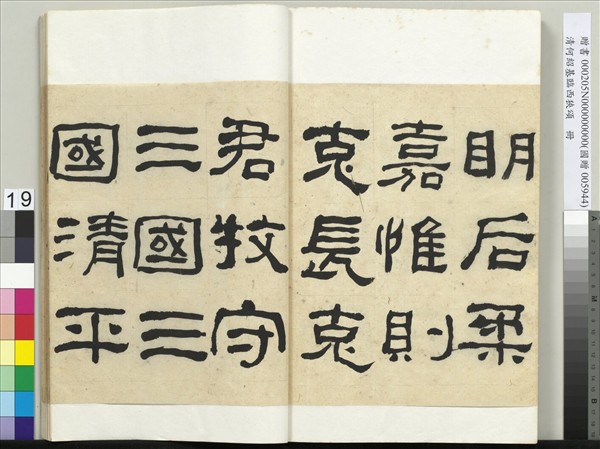 明后柔
嘉惟則
克長克
君牧守
三國三
國清平
贈書 000205N000000000(國贈 005944)
清何紹基臨西狹頌 冊
19